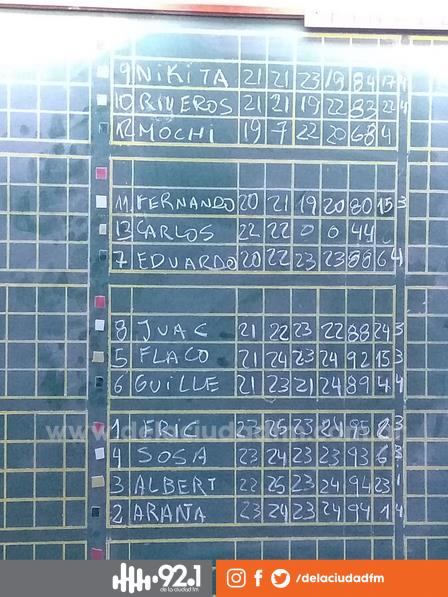 9 NiKiTA 21 21 23 19 84 17 4
10 RIVEROS 21 21 19 22 83 22 4
12 MOCHi 19 7 22 20 68 4
11 FERNANDO 20 21 19 20 80 15 3
13 CARLOS 22 22 0 0 44
7 EDUARDO 20 22 23 23 88 6 4
8 JUAC 21 22 23 22 88 24 3
5 FLACO 21 24 23 24 92 15 3
6 GUILLE 21 23 21 24 89 4 4
1 ERIC 23 25 23 24 95 2 3
4 SOSA 23 24 23 23 93 6 3
3 ALBERT 22 25 23 24 94 23 1
2 ARANA 23 24 23 24 94 1 4
www.delaciudadfm.com
92.1 /delaciudadfm
de la ciudad fm